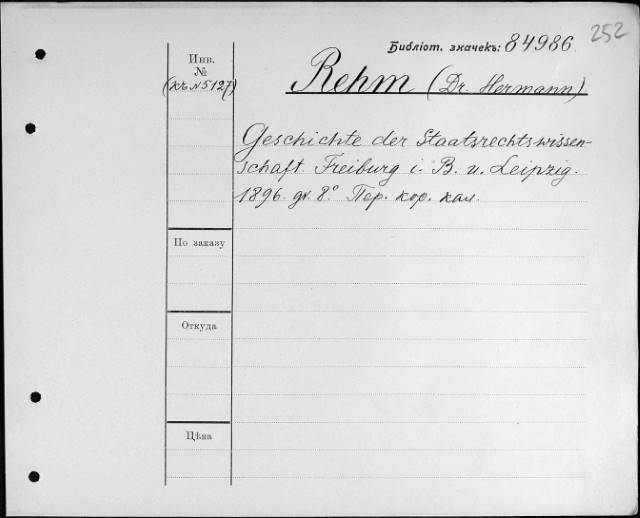 252
Библіот. значекъ: 84986.
Инв.
№
(къ № 5127)
Rehm (Dr. Hermann)
Geschichte der Staatsrechtswissen-
schaft. Freiburg i. B. u. Leipzig.
1896. gr. 8°. Пер. кор. кал.
По заказу
Откуда
Цѣна